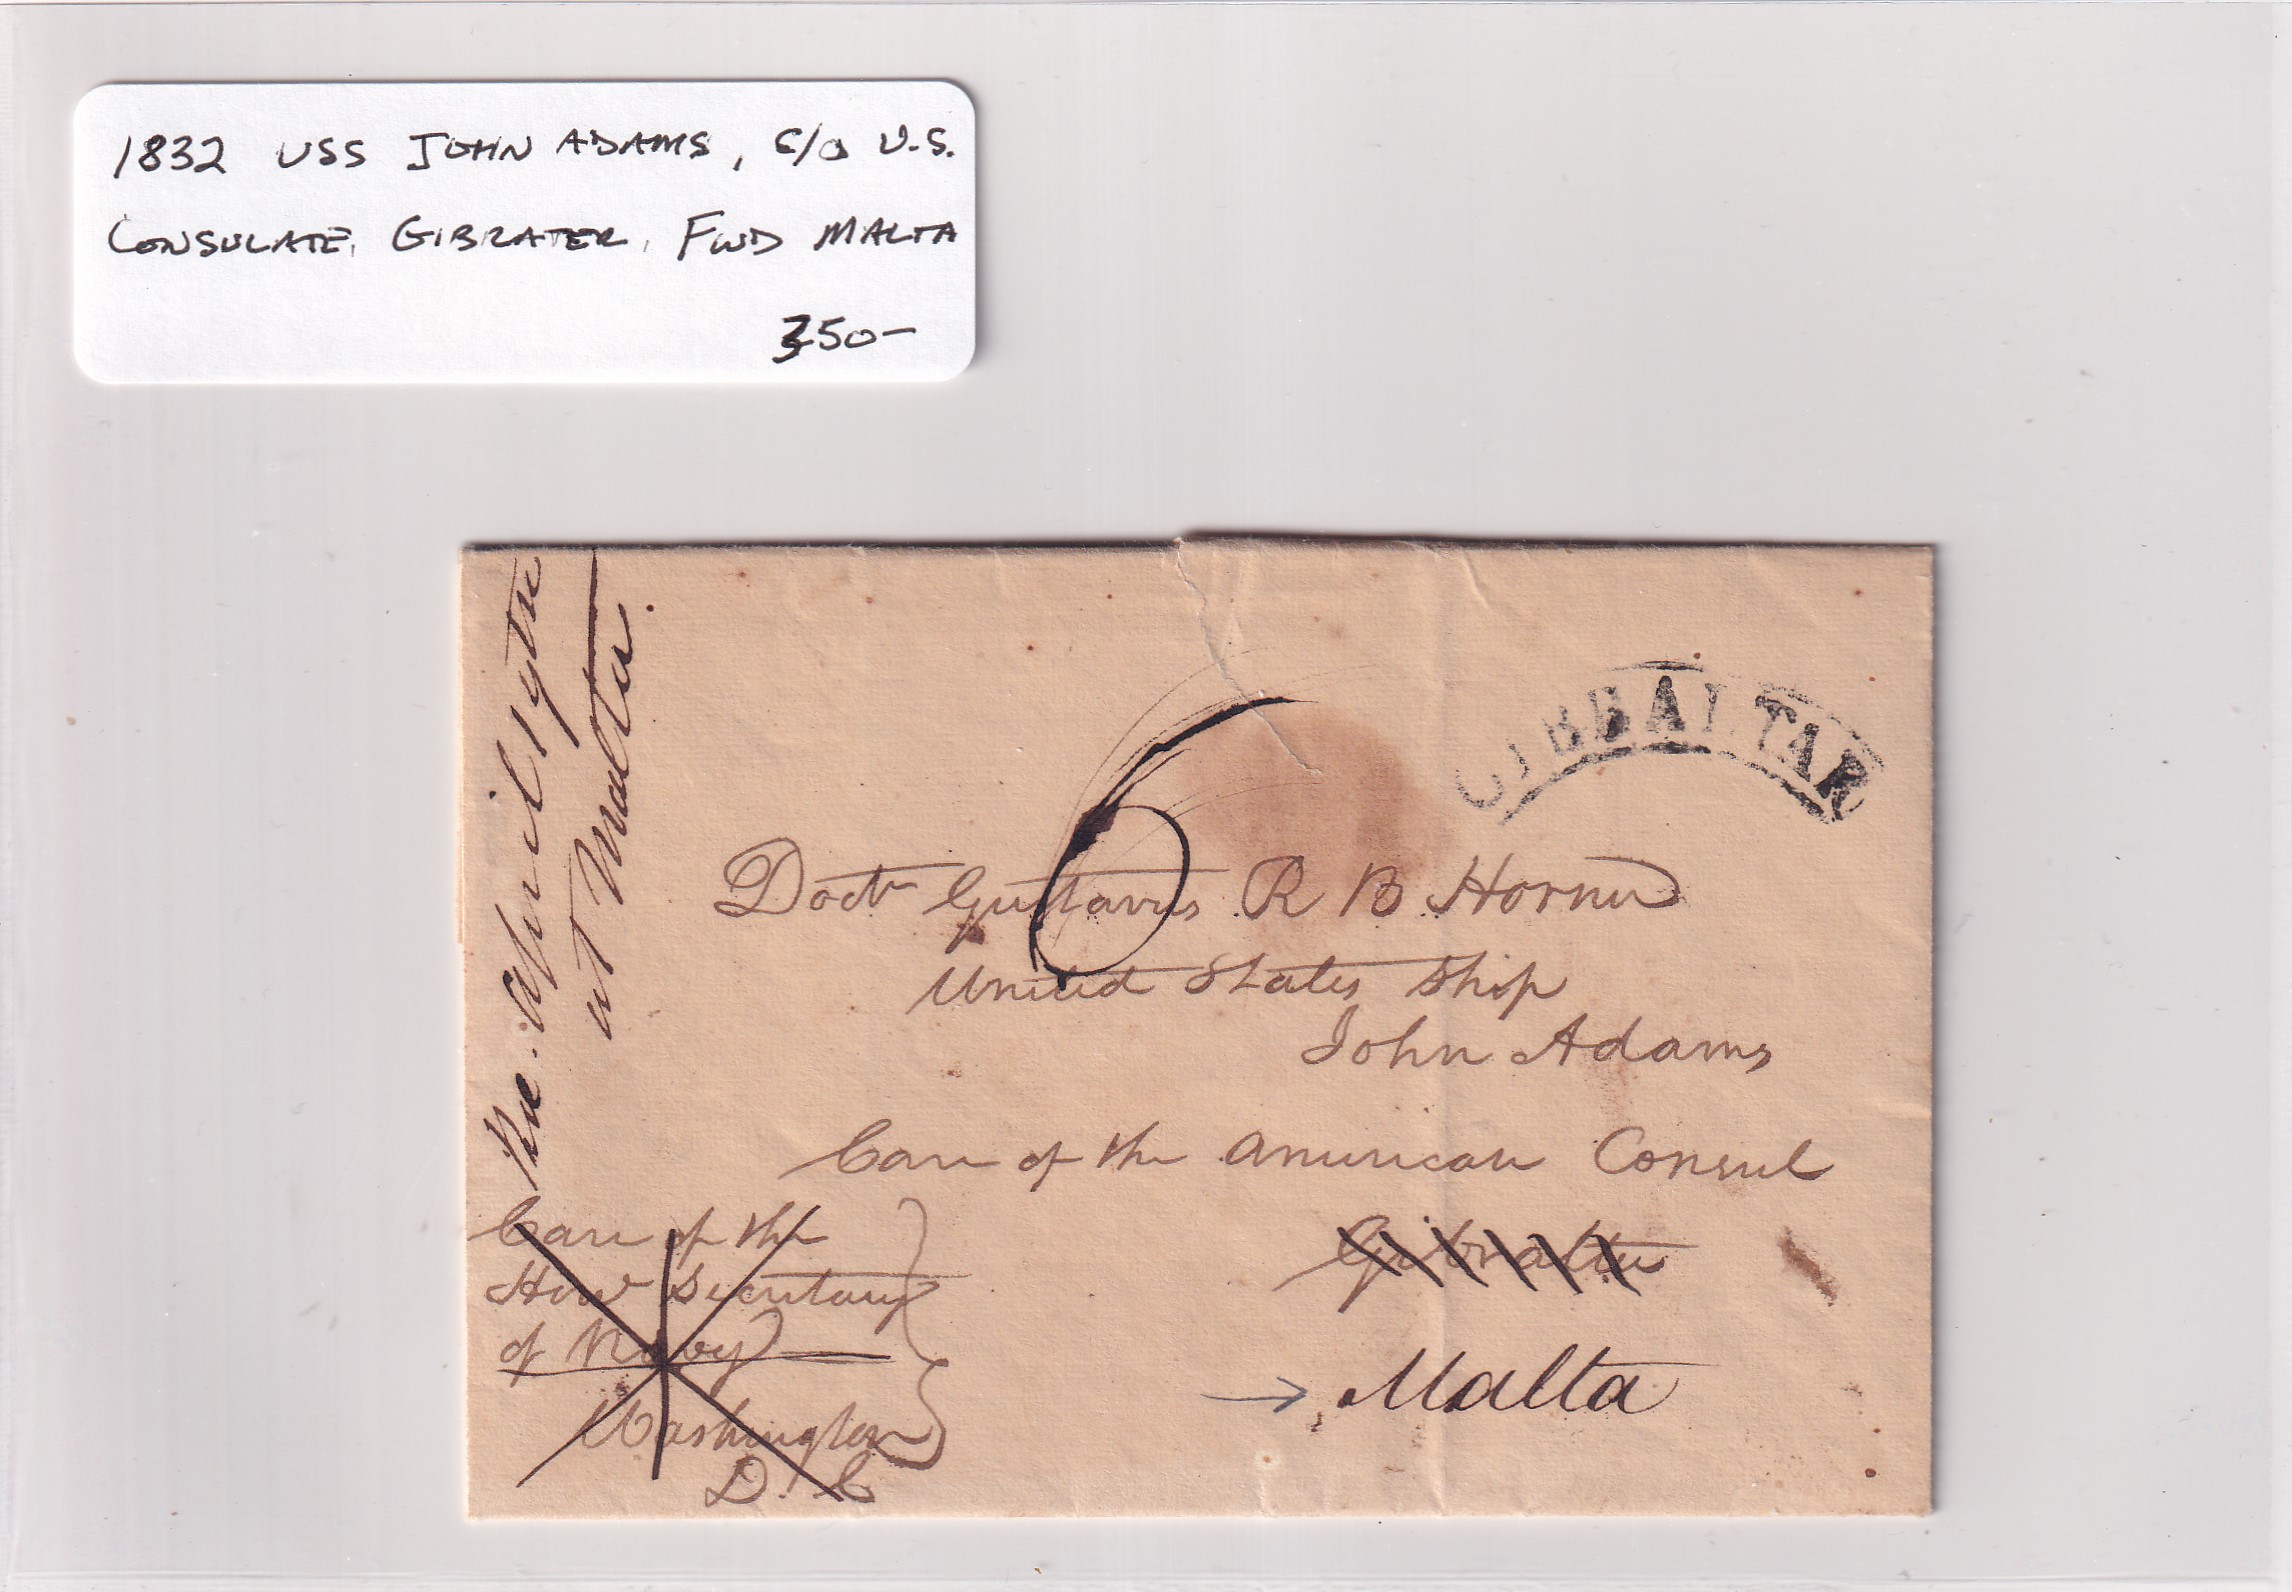 1832 USS JOHN ADAMS, C/O U.S.
CONSULATE, GIBRATER, FWD MALTA
350-
Rec. April 19th
at Malta.
GIBRALTAR
6
Doctr Gustavus R B Horner
United States Ship
John Adams
Care of the American Consul
Gibralter
→ Malta
Care of the
Hon Secretary
of Navy
Washington
D. C